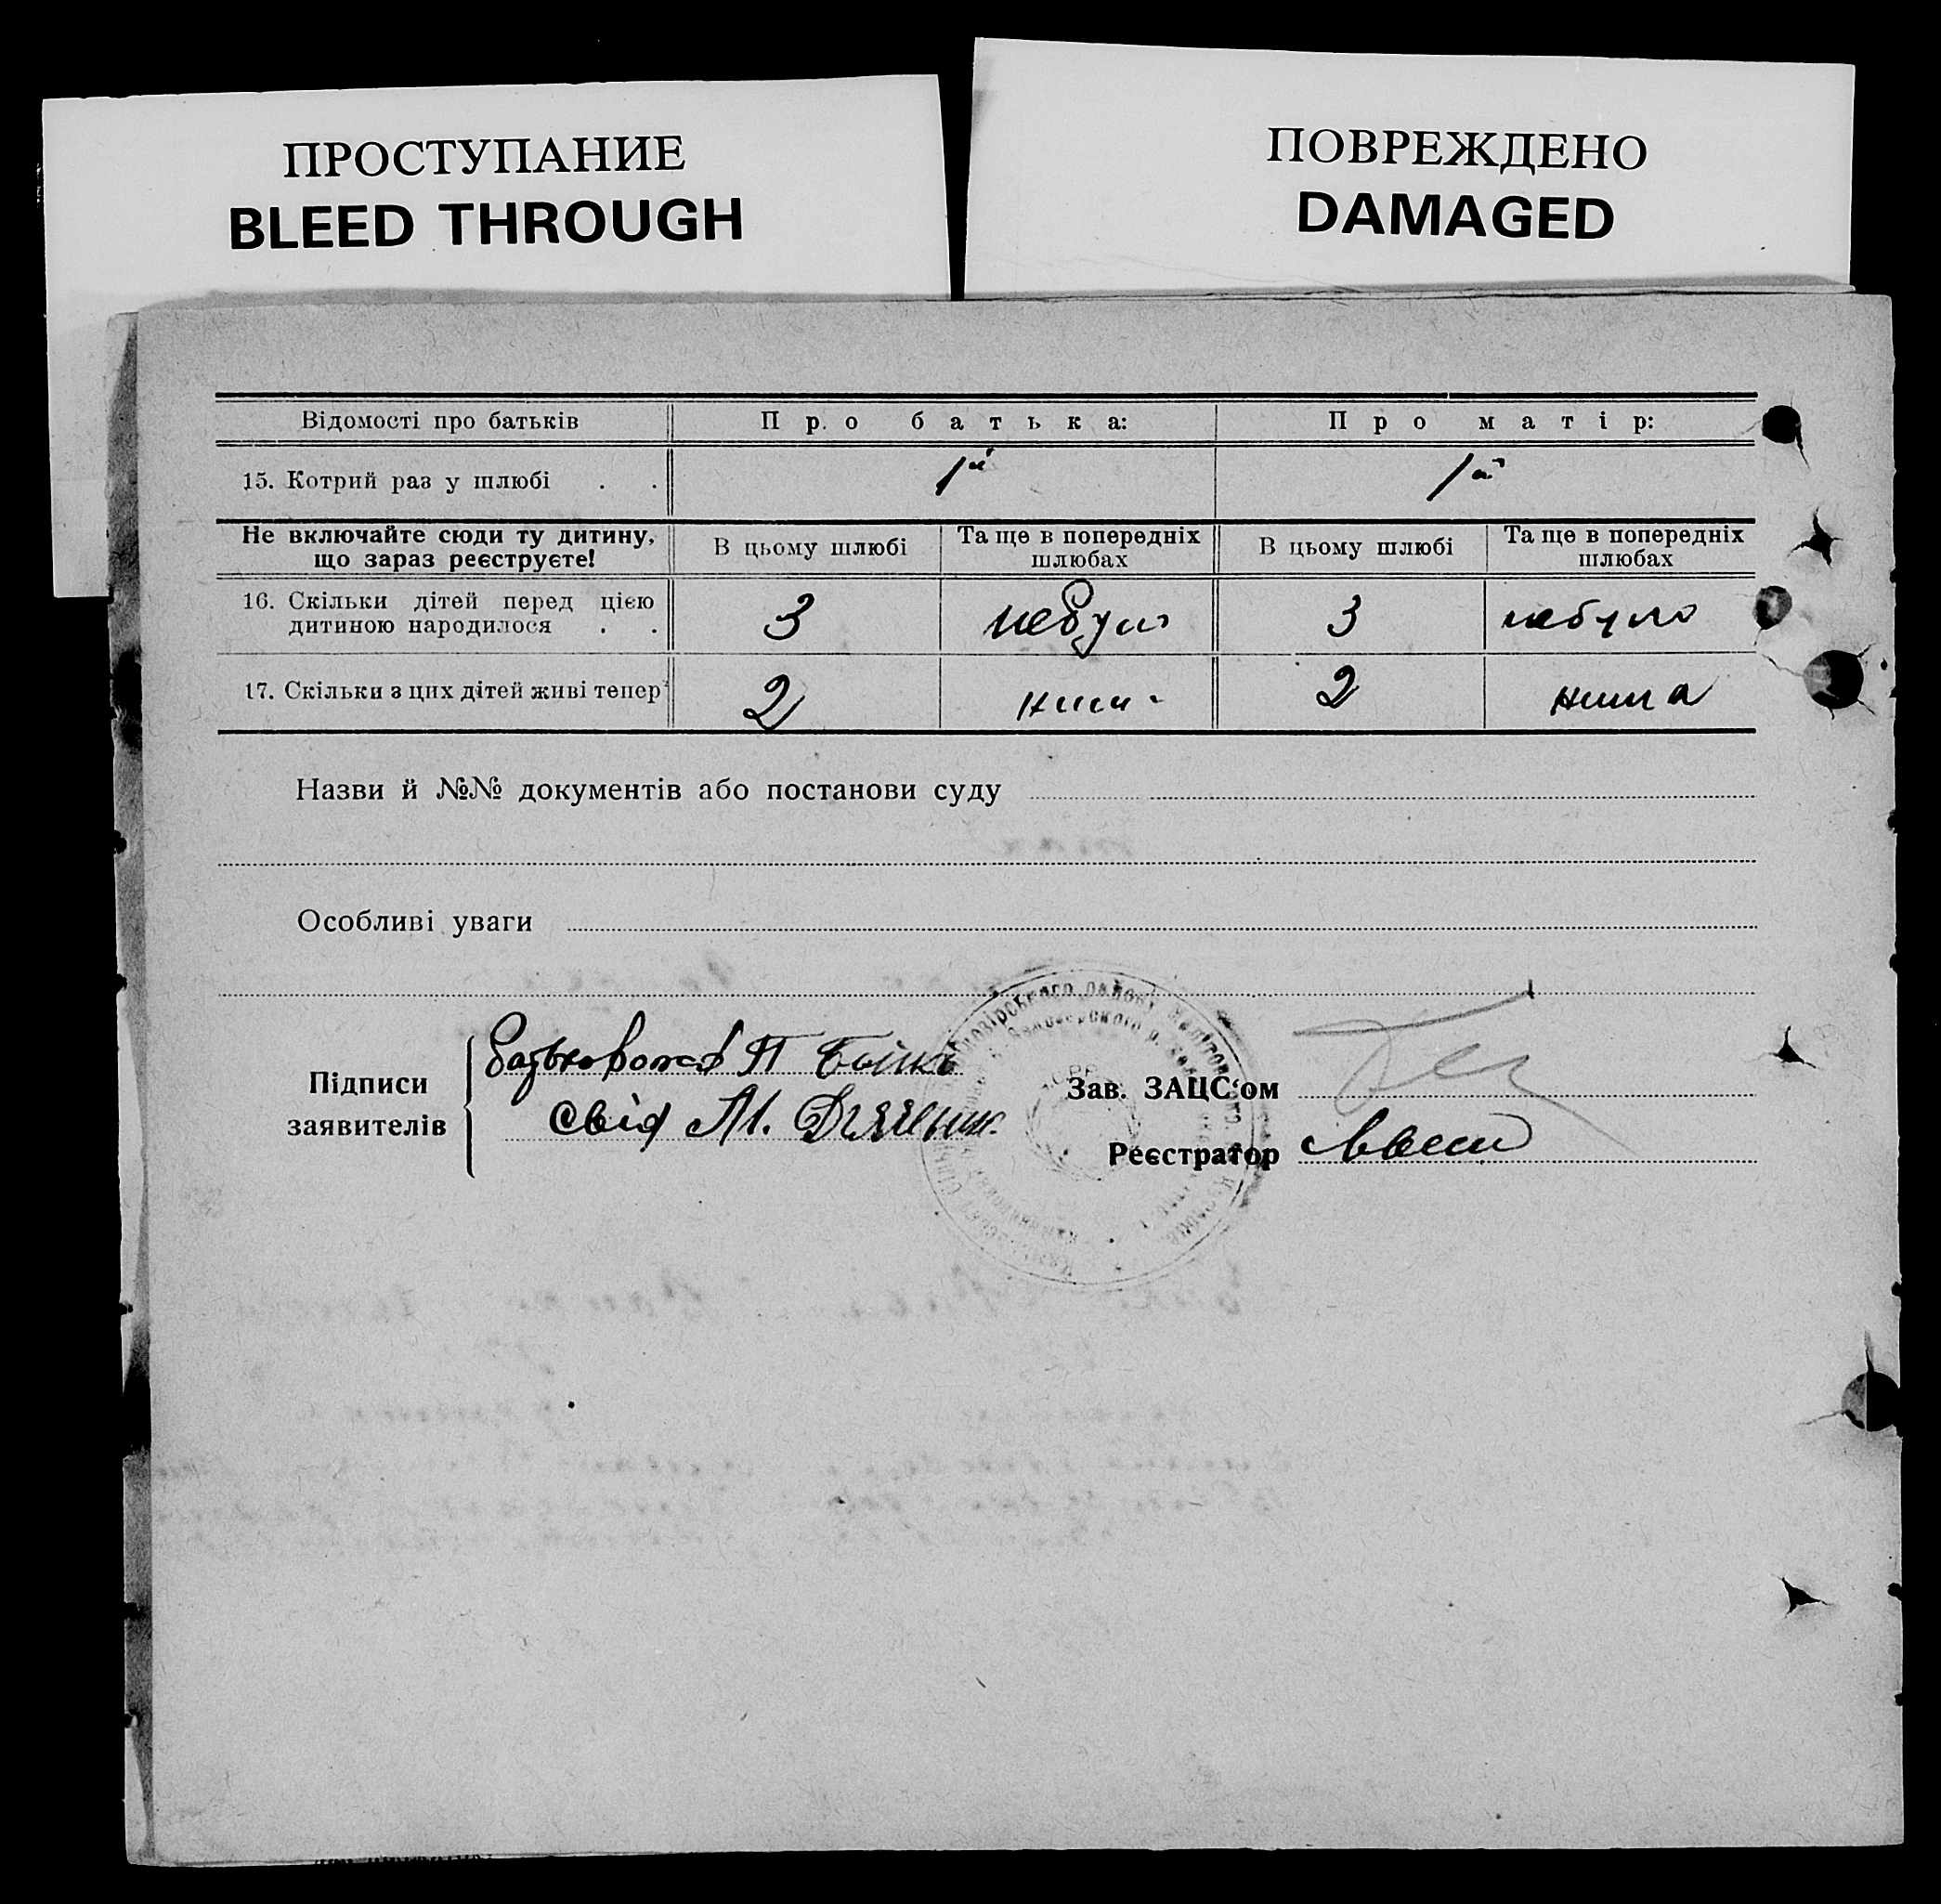 ПРОСТУПАНИЕ
BLEED THROUGH
ПОВРЕЖДЕНО
DAMAGED
Відомості про батьків Про батька: Про матір:
15. Котрий раз у шлюбі . . 1й 1й
Не включайте сюди ту дитину, що зараз реєструєте! В цьому шлюбі Та ще в попередніх шлюбах В цьому шлюбі Та ще в попередніх шлюбах
16. Скільки дітей перед цією
дитиною народилося . . 3 небуло 3 небуло
17. Скільки з цих дітей живі тепер 2 нима 2 нима
Назви й №№ документів або постанови суду
Особливі уваги
Підписи
заявителів
П Бойко
свід М. Дяченко
Зав. ЗАЦС'ом
Реєстратор